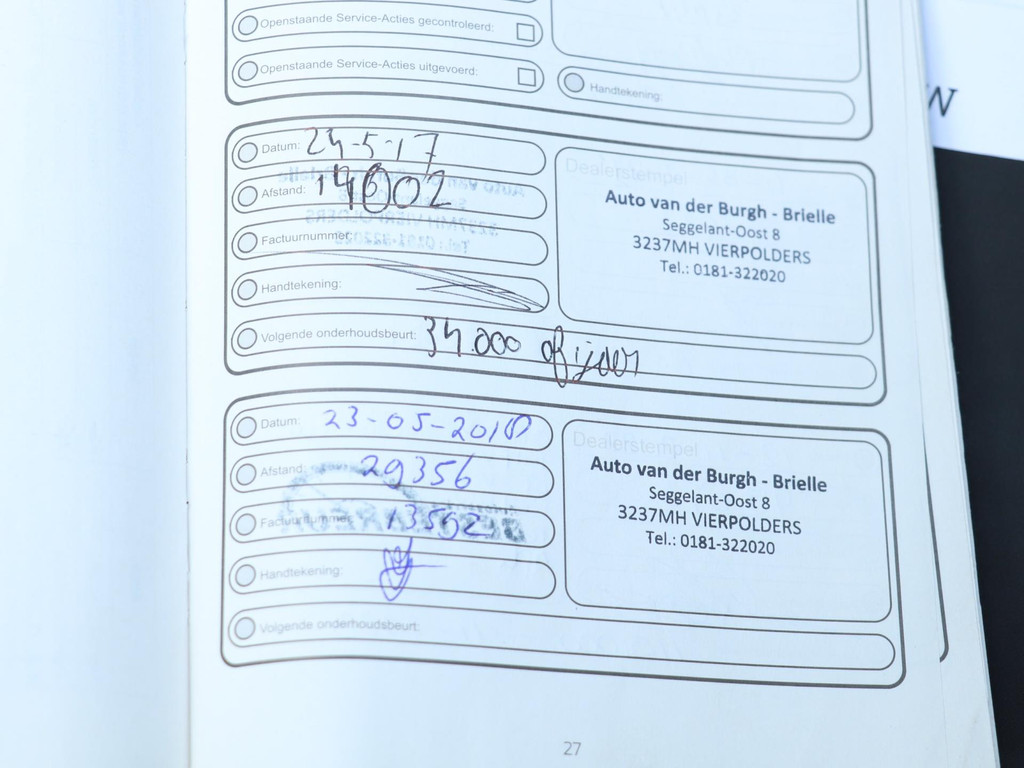 Openstaande Service-Acties gecontroleerd:
Openstaande Service-Acties uitgevoerd:
Handtekening:
Datum: 24-5-17
Afstand: 14002
Factuurnummer:
Handtekening:
Volgende onderhoudsbeurt: 34.000 of
Dealerstempel
Auto van der Burgh - Brielle
Seggelant-Oost 8
3237MH VIERPOLDERS
Tel.: 0181-322020
Datum: 23-05-2018
Afstand: 29356
Factuurnummer: 13592
Handtekening:
Volgende onderhoudsbeurt:
Dealerstempel
Auto van der Burgh - Brielle
Seggelant-Oost 8
3237MH VIERPOLDERS
Tel.: 0181-322020
27